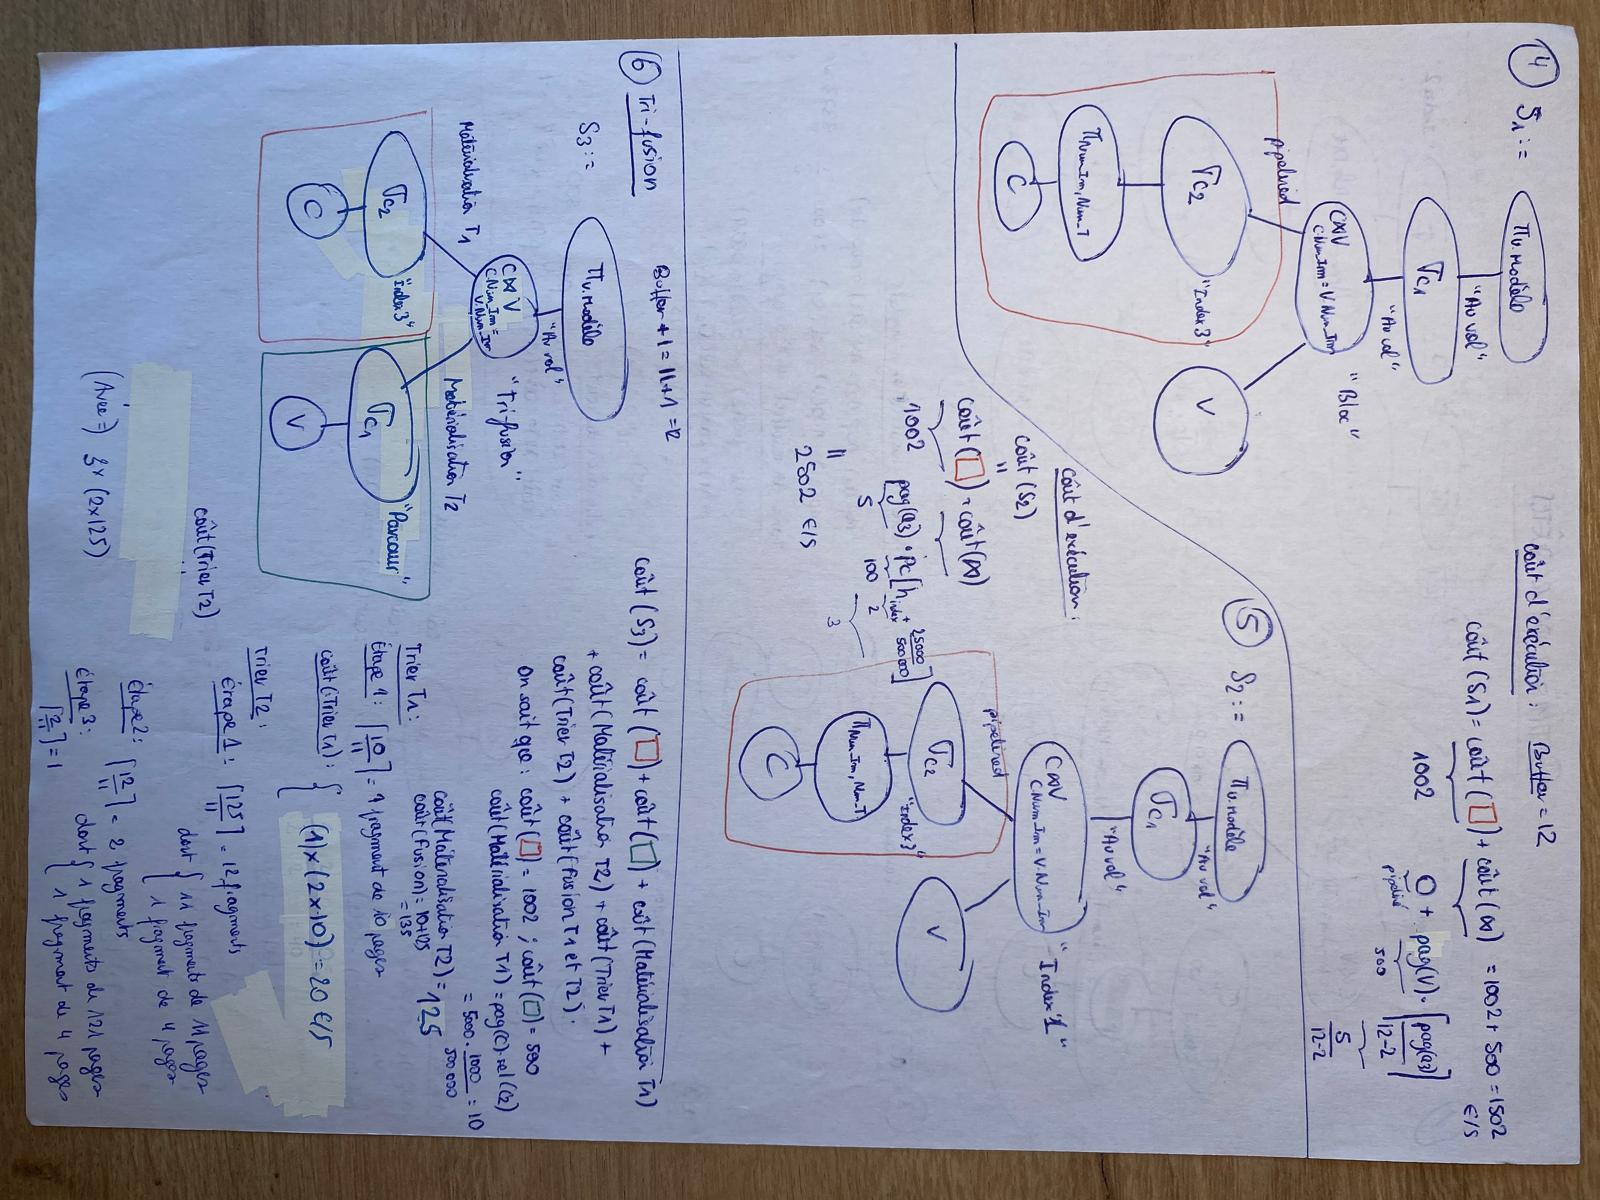 4 S1 :=
Π V.Modèle
"Au vol"
σC1
"Au vol"
C⋈V
C.Num_Im = V.Num_Im
"Bloc"
pipelined
σC2
"Index3"
V
Π Num_Im, Num_T
C
coût d'exécution : Buffer = 12
coût (S1) = coût (□) + coût (⋈) = 1002 + 500 = 1502
E/S
1002
0 + pag(V) · ⌈pag(a3)/12-2⌉
pipeliné
500
5/12-2
5 S2 :=
Π V.Modèle
"Au vol"
σC1
"Au vol"
C⋈V
C.Num_Im = V.Num_Im
"Index1"
pipelined
σC2
"Index3"
V
Π Num_Im, Num_T
C
coût d'exécution :
coût (S2)
=
coût (□) + coût (⋈)
1002
pag(a3) · PC [h index + 25000/500000]
5 100 2
3
=
2502 E/S
6 Tri-fusion
Buffer + 1 = 11+1 = 12
S3 :=
Π V.Modèle
"Au vol"
C⋈V
C.Num_Im =
V.Num_Im
"Tri-fusion"
Matérialisation T1
Matérialisation T2
σC2
"Index3"
σC1
"Parcour"
C
V
coût (S3) = coût (□) + coût (□) + coût (Matérialisation T1)
+ coût (Matérialisation T2) + coût (Trier T1) +
coût (Trier T2) + coût (Fusion T1 et T2).
On sait que : coût (□) = 1002 ; coût (□) = 500
coût (Matérialisation T1) = pag(C)·sel(C2)
= 5000 · 1000/500000 = 10
coût (Matérialisation T2) = 125
coût (Fusion) = 10+125
= 135
Trier T1 :
Étape 1 : ⌈10/11⌉ = 1 fragment de 10 pages
coût (Trier T1) : { (1) x (2 x 10) = 20 E/S
Trier T2 :
Étape 1 : ⌈125/11⌉ = 12 fragments
dont { 11 fragments de 11 pages
1 fragment de 4 pages
Étape 2 :
⌈12/11⌉ = 2 fragments
dont { 1 fragments de 121 pages
1 fragment de 4 pages
Étape 3 :
⌈2/11⌉ = 1
coût (Trier T2)
3 x (2 x 125)